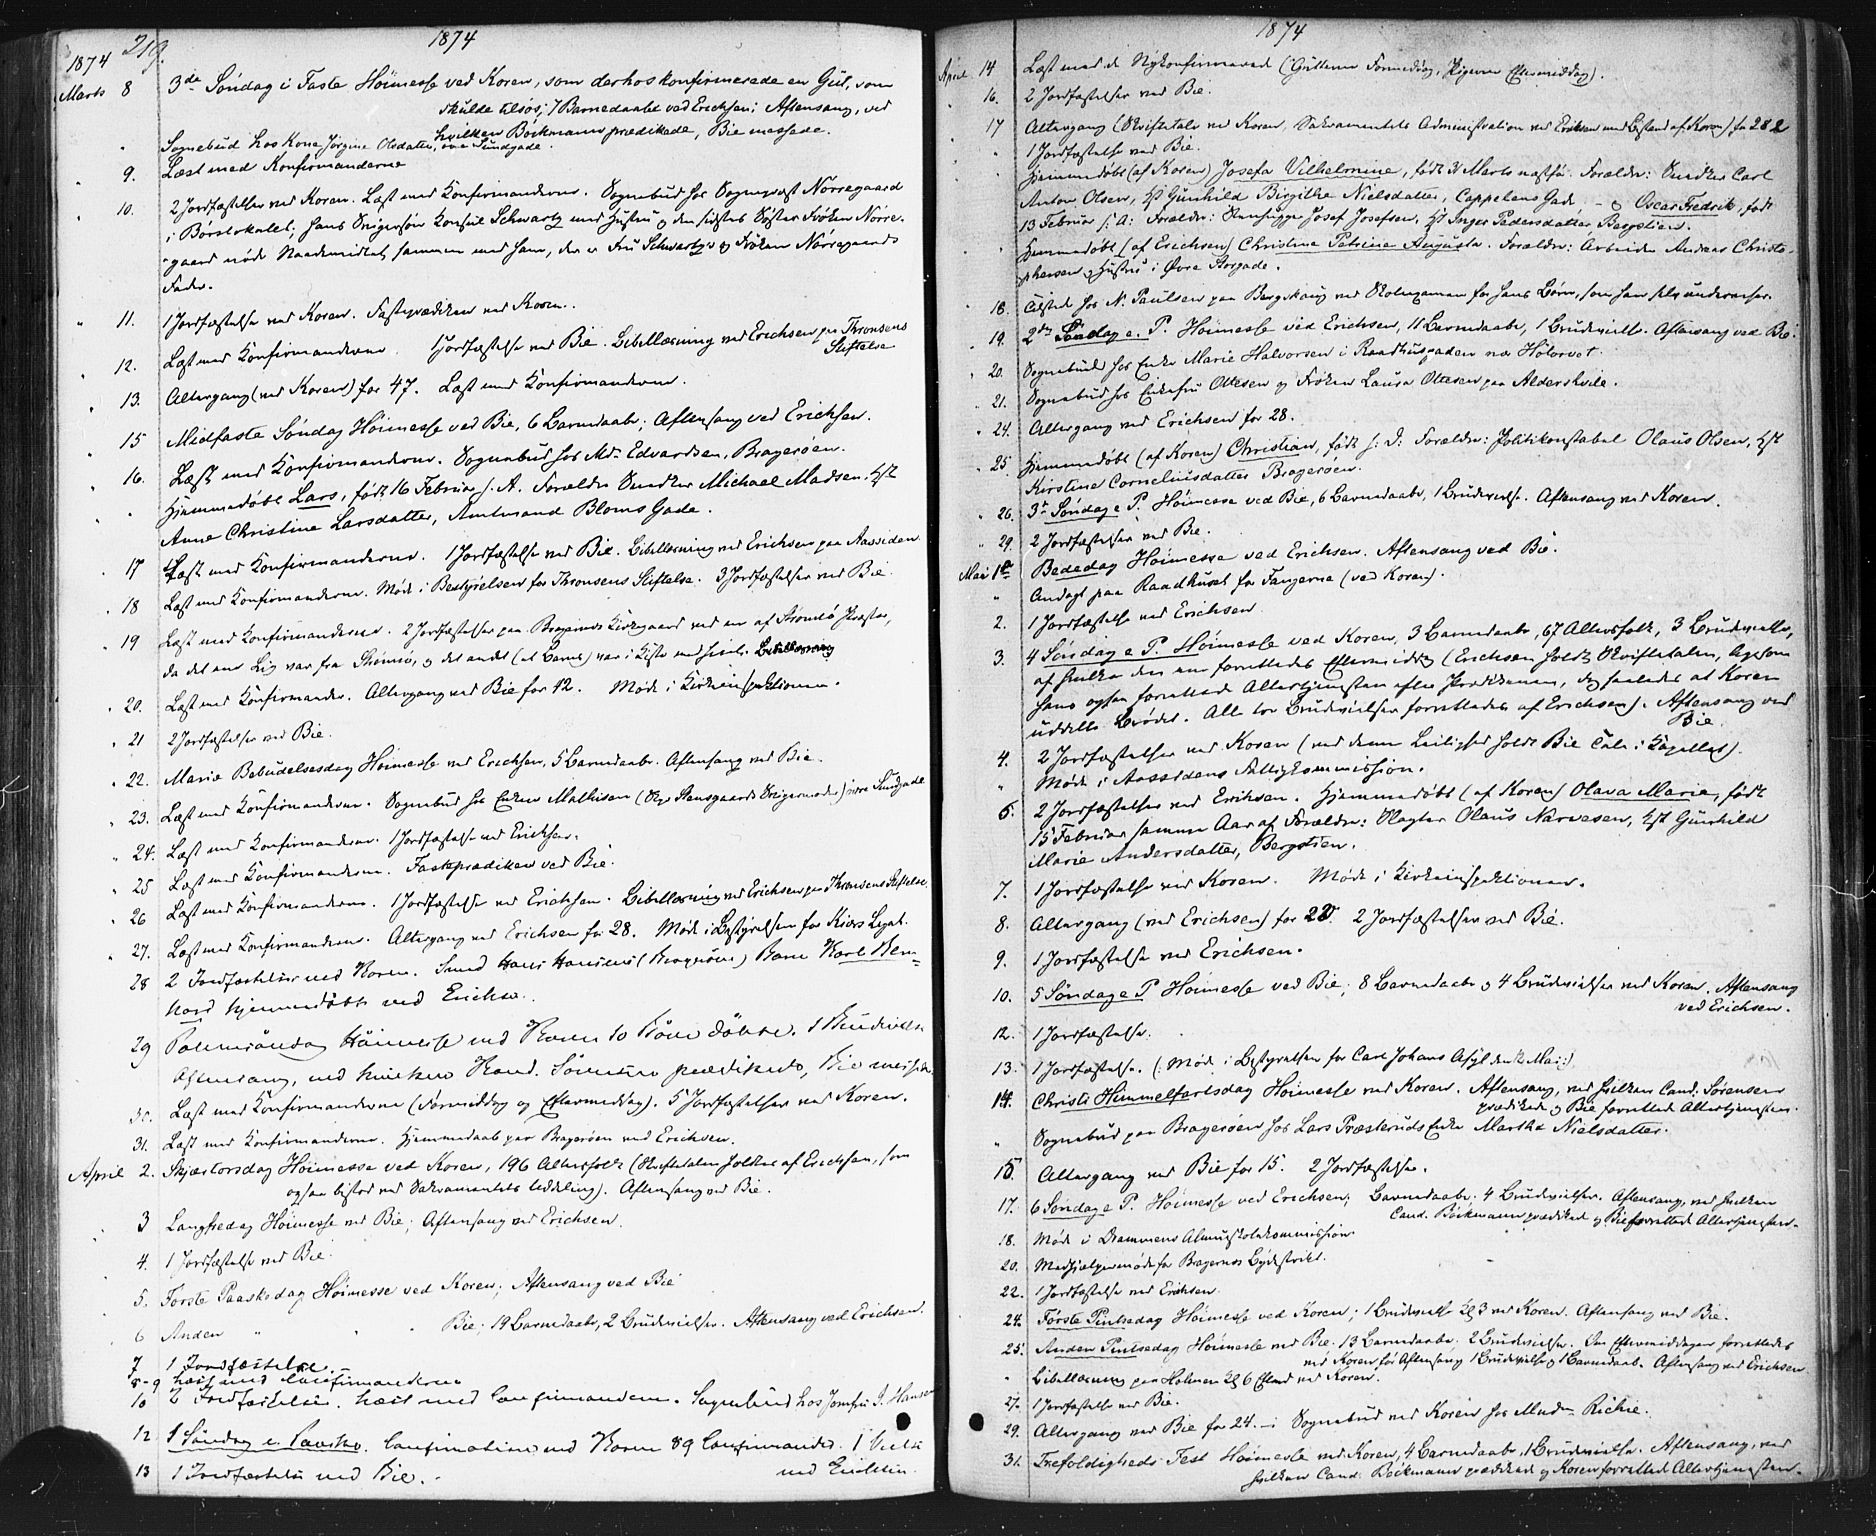 219.
1874
1874
Marts 8 3de Søndag i Faste Høimesse ved Koren, som derhos konfirmerede en Gut, som
skulde tilsøs; 7 Barnedaabe ved Erichsen; Aftensang, ved
hvilken Böckmann prædikede, Bie messede.
" Sognebud hos Kone Jörgine Olsdatter, øvre Sundgade.
" 9. Læst med Konfirmanderne
" 10. 2 Jordfæstelser ved Koren. Læst med Konfirmanderne. Sognebud hos Sogneprest Nørregaard
i Børslokalet, hans Svigersøn Konsul Schwartz med Hustru og den sidstes Søster Frøken Nörre-
gaard nøde Naademidlet sammen med ham, der er Fru Schwartz's og Frøken Nørregaards
Fader.
" 11. 1 Jordfæstelse ved Koren. Fasteprædiken ved Koren.
" 12. Læst med Konfirmanderne. 1 Jordfæstelse ved Bie. Bibellæsning ved Erichsen paa Thronsens
Stiftelse
" 13. Altergang (ved Koren) for 47. Læst med Konfirmanderne.
" 15 Midfaste Søndag Høimesse ved Bie, 6 Barnedaabe; Aftensang ved Erichsen.
" 16. Læst med Konfirmanderne. Sognebud hos Md. Edvardsen, Bragerøen.
" " Hjemmedøbt Lars, født 16 Februar s. A. Forældre Snedker Michael Madsen, Hst
Anne Christine Larsdatter, Amtmand Bloms Gade.
" 17 Læst med Konfirmanderne. 1 Jordfæstelse ved Bie. Bibellæsning ved Erichsen paa Aassiden
" 18 Læst med Konfirmanderne. Møde i Bestyrelsen for Thronsens Stiftelse. 3 Jordfæstelser ved Bie.
" 19 Læst med Konfirmanderne. 2 Jordfæstelser paa Bragernes Kirkegaard ved en af Strømsø Præster,
da det ene Lig var fra Strømsø, og det andet (et Barn) var i Kiste med hint. Bibellæsning
" 20. Læst med Konfirmander. Altergang ved Bie for 12. Møde i Kirkeinspektionen.
" 21 2 Jordfæstelser ved Bie.
" 22. Mariæ Bebudelsesdag Høimesse ved Erichsen, 5 Barnedaabe. Aftensang ved Bie.
" 23. Læst med Konfirmanderne. Sognebud hos Enken Mathisen (Skps Stensgaards Svigermoder) øvre Sundgade
" 24. Læst med Konfirmanderne. 1 Jordfæstelse ved Erichsen.
" 25 Læst med Konfirmanderne. Fasteprædiken ved Bie.
" 26 Læst med Konfirmanderne. 1 Jordfæstelse ved Erichsen. Bibellæsning ved Erichsen paa Thronsens Stiftelse.
" 27. Læst med Konfirmanderne. Altergang ved Erichsen for 28. Møde i Bestyrelsen for Kiørs Legat.
28 2 Jordfæstelser ved Koren. Smed Hans Hansens (Bragerøen) Barn Karl Bern-
hard hjemmedöbt ved Erichsen.
29 Palmesöndag Höimesse ved Koren 10 Börn döbte. 1 Brudevielse
Aftensang, ved hvilken Kand. Sörensen prædikede, Bie messede.
30. Læst med Konfirmanderne (Formiddag og Eftermiddag). 5 Jordfæstelser ved Koren.
31. Læst med Konfirmanderne. Hjemmedaab paa Bragerøen ved Erichsen.
April 2. Skjærtorsdag Høimesse ved Koren, 196 Altersfolk (Skriftetalen holdtes af Erichsen, som
ogsaa bistod ved Sakramentets Uddeling). Aftensang ved Bie.
3 Langfredag Høimesse ved Bie; Aftensang ved Erichsen.
4. 1 Jordfæstelse ved Bie.
5. Første Paaskedag Høimesse ved Koren; Aftensang ved Bie
6 Anden " " Bie; 19 Barnedaabe, 2 Brudevielser. Aftensang ved Erichsen.
7 1 Jordfæstelse.
8-9 Læst med Confirmanderne
10 2 Jordfæstelser. Læst med Confirmanderne. Sognebud hos Jomfru I. Hansen
12 1 Søndag e. Paaske. Confirmation ved Koren 89 Confirmander. 1 Vielse
ved Erichsen.
13 1 Jordfæstelse ved Bie.
1874
April 14 Læst med de Nykonfirmerede (Gutterne Formiddag, Pigerne Eftermiddag).
" 16. 2 Jordfæstelser ved Bie.
" 17 Altergang (Skriftetale ved Koren, Sakramentets Administration ved Erichsen med Bistand af Koren) for 282
" " 1 Jordfæstelse ved Bie.
" Hjemmedøbt (af Koren) Josefa Vilhelmine, født 31 Marts næstfør. Forældre: Snedker Carl
Anton Olsen, Hst Gunhild Birgithe Nielsdatter, Cappelens Gade – og Oscar Fredrik, født
13 Februar s: A: Forældre: Stenhugger Josef Josefsen, Hst Inger Pedersdatter, Bergstien.
" Hjemmedøbt (af Erichsen) Christine Petrine Augusta. Forældre: Arbeider Andreas Christo-
phersen og Hustru i Øvre Storgade.
" 18. Tilsted hos N. Paulsen paa Bergskoug ved Skoleexamen for hans Børn, som han selv underviser.
" 19. 2den Søndag e. P. Høimesse ved Erichsen, 11 Barnedaabe, 1 Brudevielse. Aftensang ved Bie.
" 20. Sognebud hos Enke Marie Halvorsen i Raadhusgaden nær Hötorvet.
" 21. Sognebud hos Enkefru Ottesen og Frøken Laura Ottesen paa Aldershvile.
" 24. Altergang ved Erichsen for 28.
" 25 Hjemmedøbt (af Koren) Christian, født s: D: Forældre: Politikonstabel Olaus Olsen, Hst
Kirstine Corneliusdatter Bragerøen.
" 26. 3die Søndag e P. Høimesse ved Bie, 6 Barnedaabe, 1 Brudevielse. Aftensang ved Koren.
" 29. 2 Jordfæstelser ved Bie.
Mai 1ste Bededag Høimesse ved Erichsen. Aftensang ved Bie.
" Andagt paa Raadhuset for Fangerne (ved Koren).
2. 1 Jordfæstelse ved Erichsen.
3. 4 Søndag e P. Høimesse ved Koren, 3 Barnedaabe, 67 Altersfolk, 3 Brudevielser,
af hvilke den ene forrettedes Eftermiddag (Erichsen holdt Skriftetalen, ligesom
han ogsaa forrettede Altertjenesten efter Prædikenen, dog saaledes at Koren
uddelte Brødet. Alle tre Brudevielser forrettedes af Erichsen). Aftensang ved
Bie.
4. 2 Jordfæstelser ved Koren (ved denne Leilighed holdt Bie Tale i Kapellet).
" Møde i Aassidens Fattigkommission.
6. 2 Jordfæstelser ved Erichsen. Hjemmedøbt (af Koren) Olava Marie, født
15 Februar samme Aar af Forældre: Slagter Olaus Narvesen, Hst Gunhild
Marie Andersdatter, Bergstien.
7. 1 Jordfæstelse ved Koren. Møde i Kirkeinspektionen.
8. Altergang (ved Erichsen) for 20. 2 Jordfæstelser ved Bie.
9. 1 Jordfæstelse ved Erichsen.
10. 5 Søndag e P Høimesse ved Bie, 8 Barnedaabe og 4 Brudevielser ved Koren. Aftensang
ved Erichsen.
12. 1 Jordfæstelse.
13. 1 Jordfæstelse. (: Møde i Bestyrelsen for Carl Johans Asyl den 12 Mai:)
14. Christi Himmelfartsdag Høimesse ved Koren. Aftensang, ved hvilken Cand. Sørensen
prædikede og Bie forrettede Altertjenesten.
" Sognebud paa Bragerøen hos Lars Præsteruds Enke Marthe Nielsdatter.
15 Altergang ved Bie for 15. 2 Jordfæstelser.
17. 6 Søndag e P. Høimesse ved Erichsen; Barnedaabe. 4 Brudevielser. Aftensang, ved hvilken
Cand. Böckmann prædikede og Bie forrettede Altertjenesten.
18. Møde i Drammens Almueskolekommission
20. Medhjælpermøde for Bragernes Bydistrikt.
22. 1 Jordfæstelse ved Erichsen.
24. Første Pintsedag Høimesse ved Koren; 1 Brudevielse Kl 3 ved Koren. Aftensang ved Bie.
25. Anden Pintsedag Høimesse ved Bie. 13 Barnedaabe. 2 Brudevielser. Om Eftermiddagen forrettedes
ved Koren før Aftensang 1 Brudevielse og 1 Barnedaab. Aftensang ved Erichsen
" Bibellæsning paa Holmen Kl 6 Efterm ved Koren.
27. 1 Jordfæstelse ved Bie.
29. Altergang ved Bie for 24. – Sognebud ved Koren hos Mad. Richie.
31. Trefoldigheds Fest Høimesse ved Koren, 4 Barnedaabe, 1 Brudevielse. Aftensang, ved
hvilken Cand: Böckmann prædikede og Koren forrettede Altertjenesten.